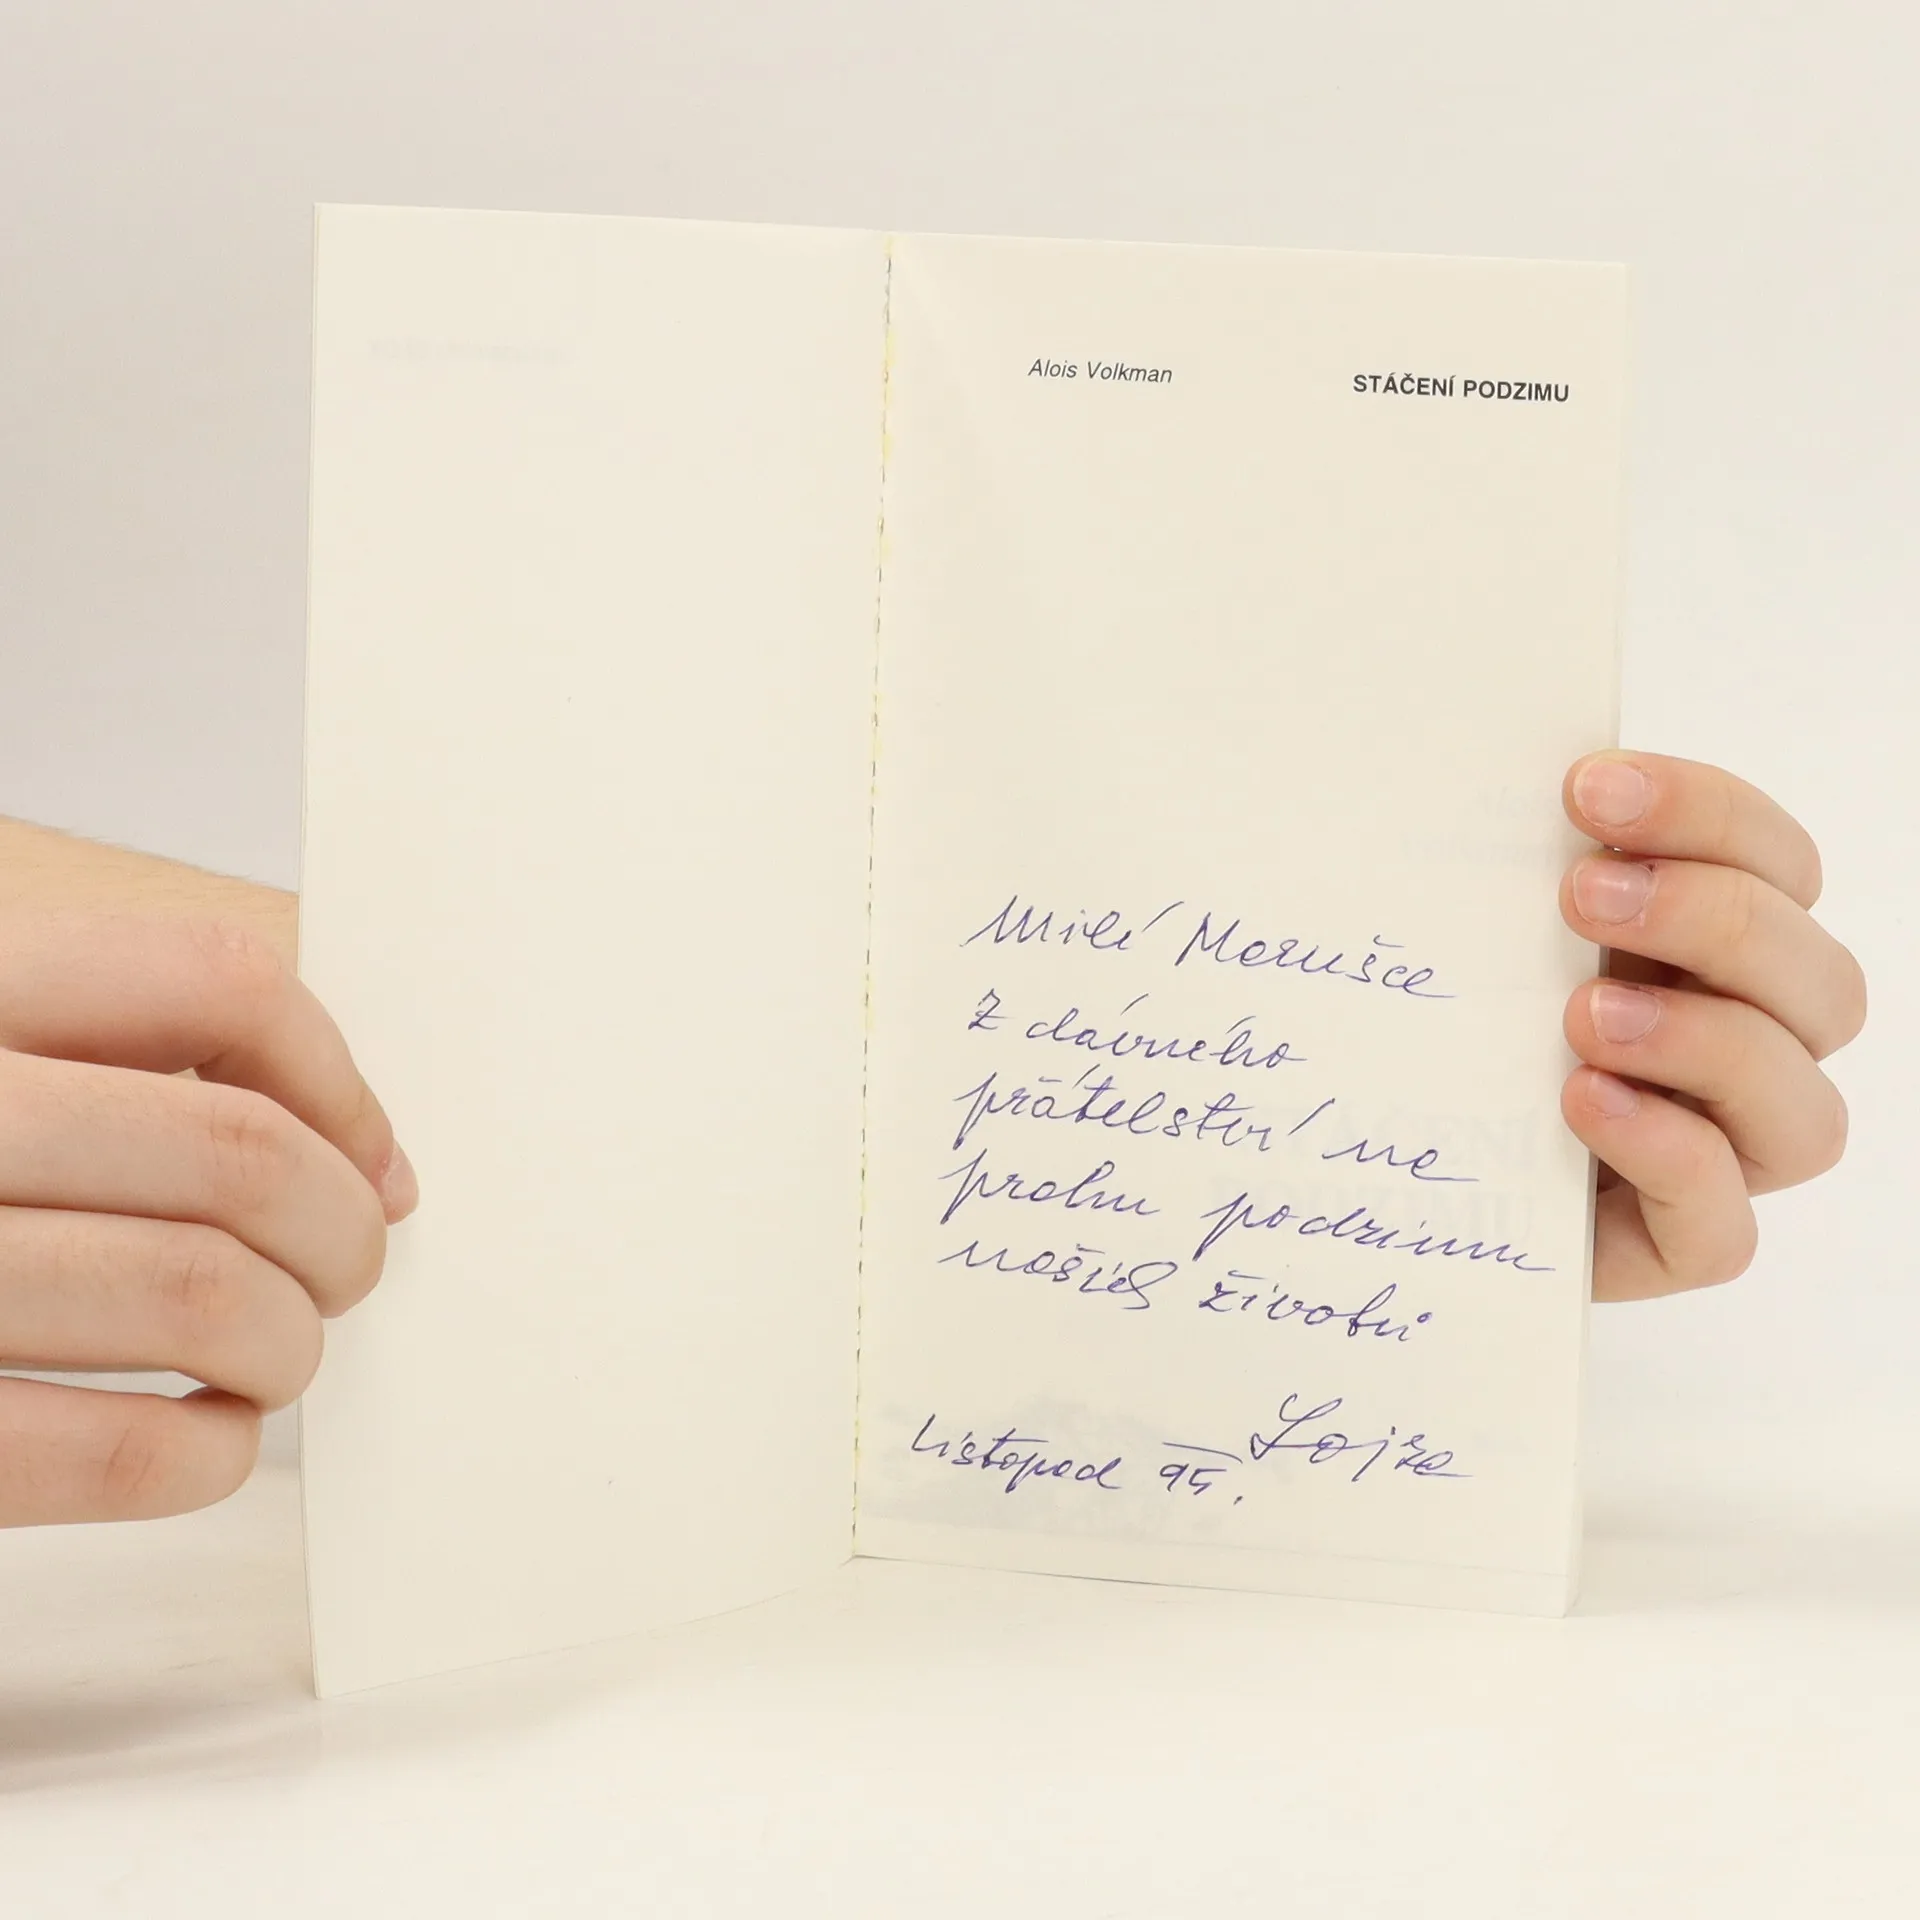 Alois Volkman
STÁČENÍ PODZIMU
Milé Marušce
z dávného
přátelství na
prahu podzimu
našich životů
Lojza
Listopad 95.